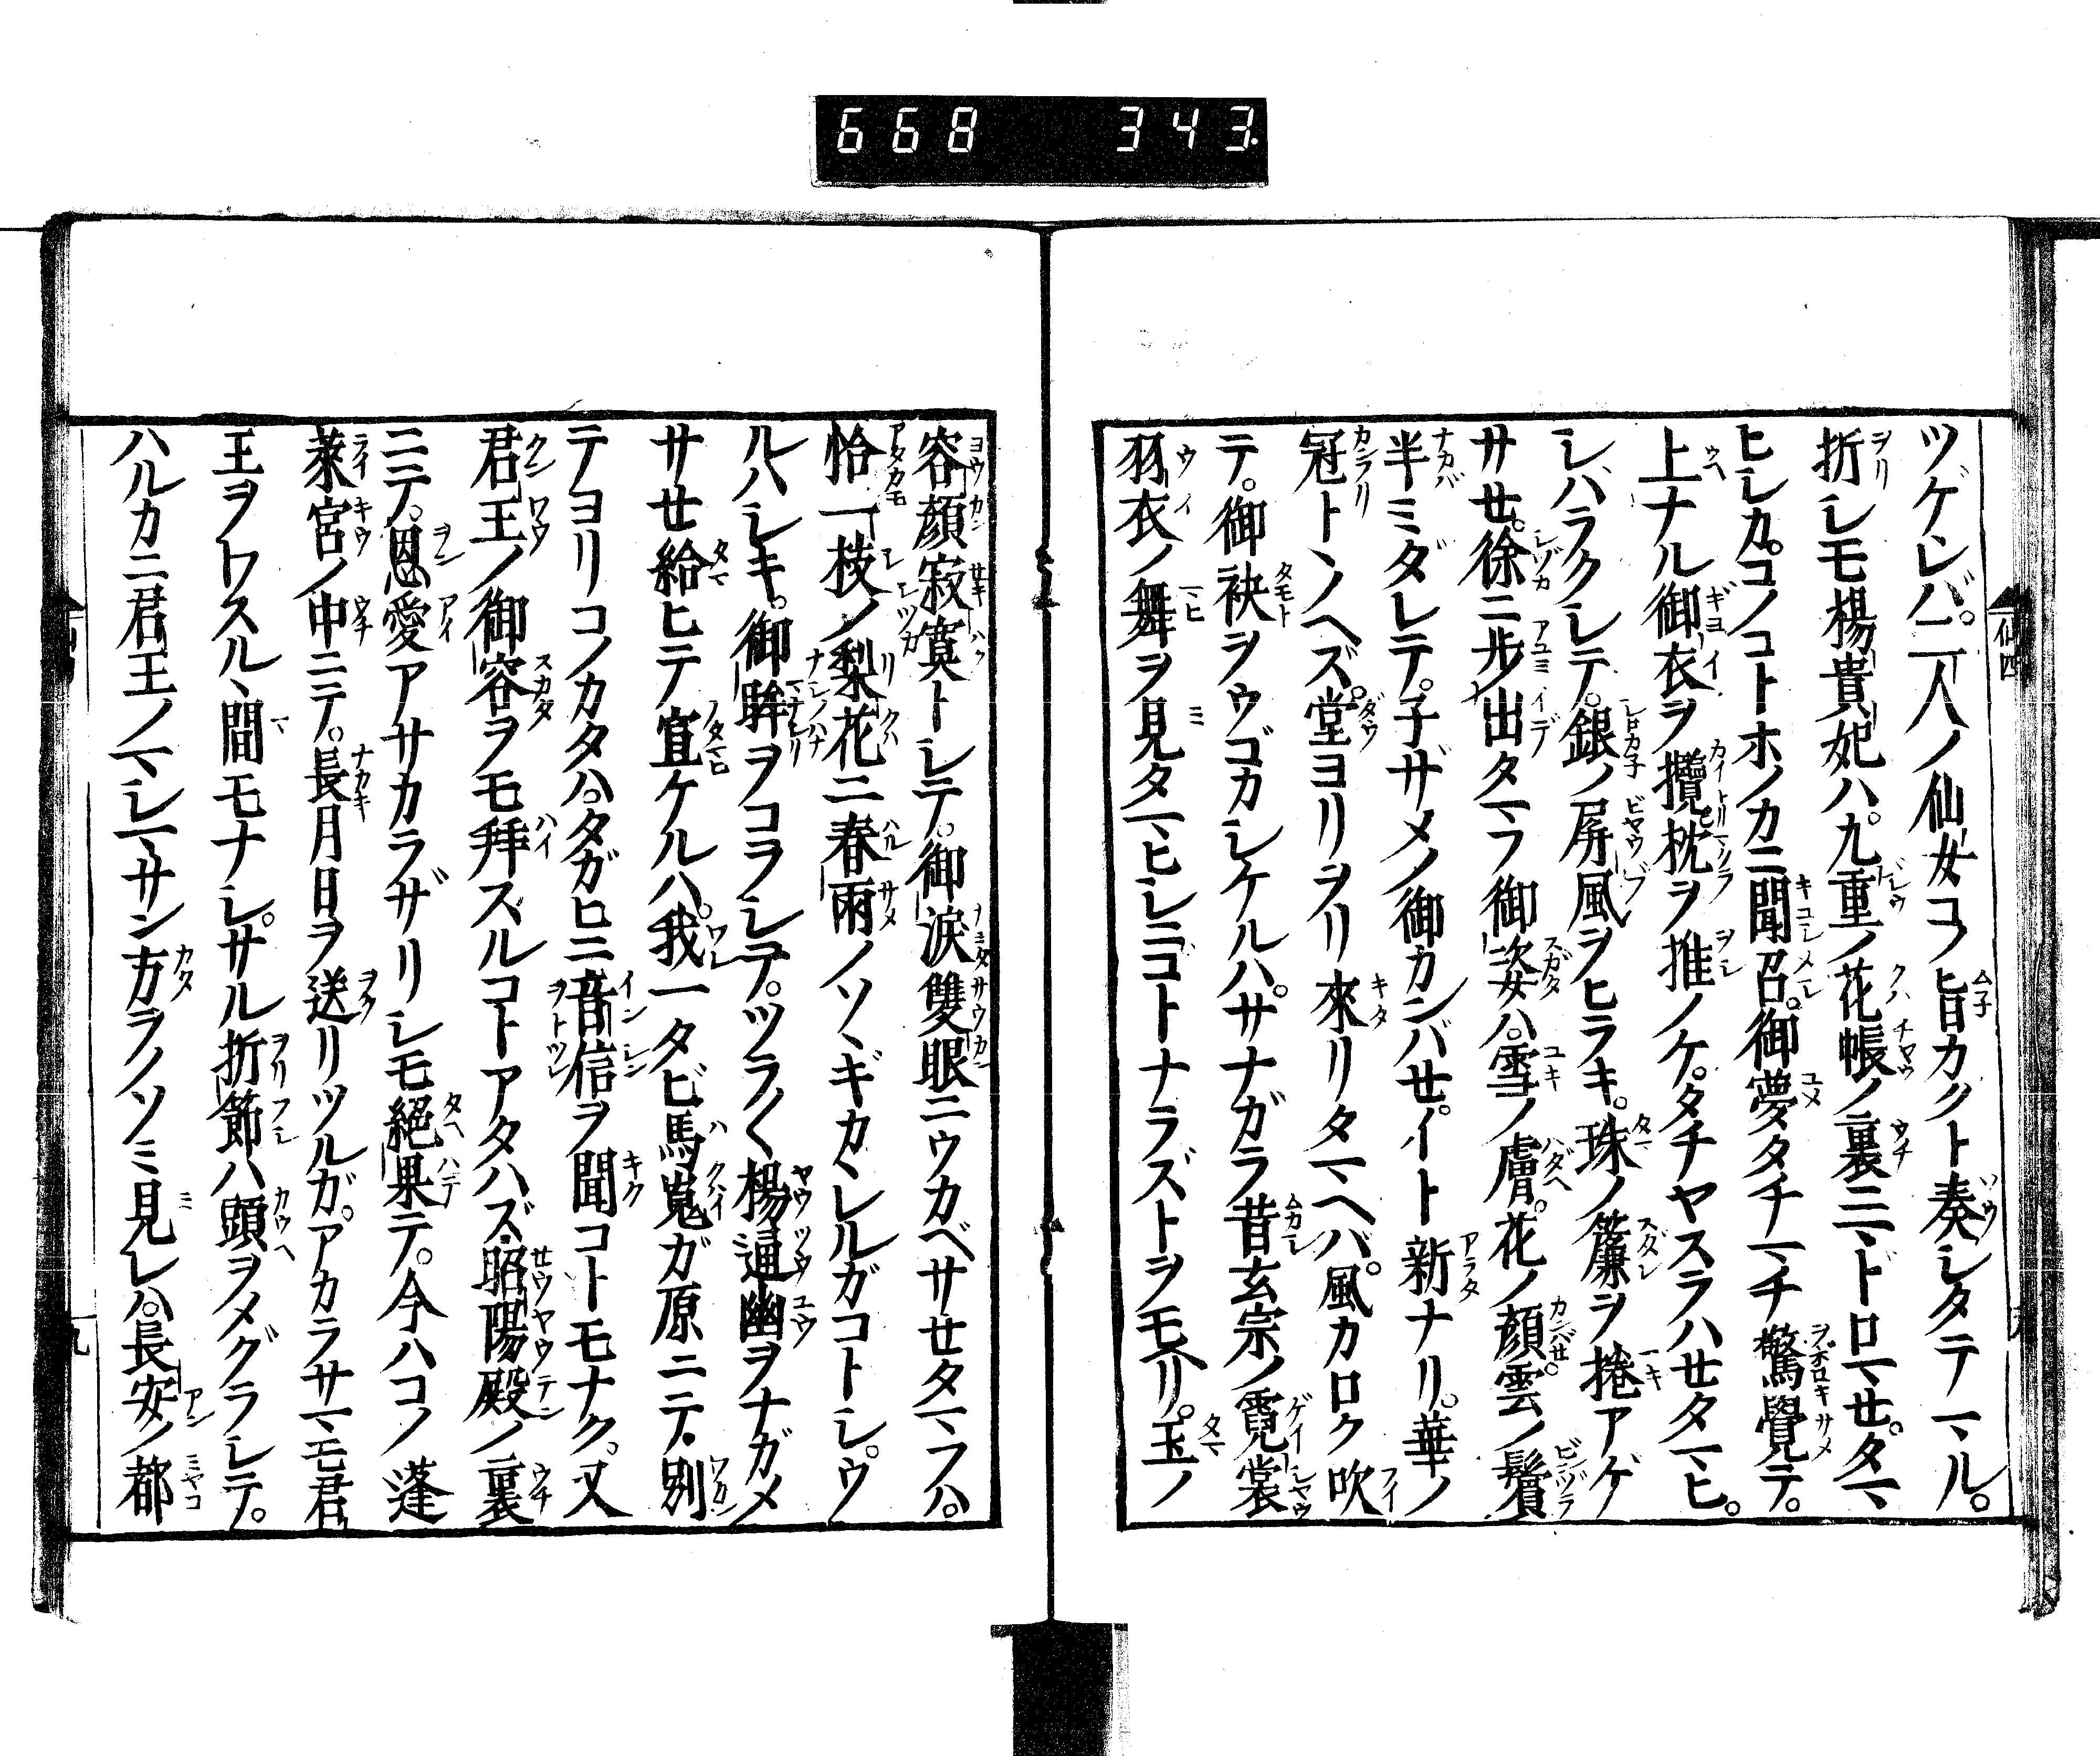 668 343
ツゲレバ。二人ノ仙女コノ旨カクト奏シタテマル。
折シモ楊貴妃ハ。九重ノ花帳ノ裏ニマドロマセ。タマ
ヒシカ。コノコトホノカニ聞召。御夢タチマチ驚覺テ。
上ナル御衣ヲ攬枕ヲ推ノケ。タチヤスラハセタマヒ。
シハラクシテ。銀ノ屏風ヲヒラキ。珠ノ簾ヲ捲アゲ
サセ。徐ニ歩出タマフ御姿ハ。雪ノ膚。花ノ顔。雲ノ鬢
半ミダレテ。子ザメノ御カンバセ。イト新ナリ。華ノ
冠トヽノヘズ。堂ヨリヲリ來リタマヘバ。風カロク吹
テ。御袂ヲウゴカシケルハ。サナガラ昔玄宗ノ霓裳
羽衣ノ舞ヲ見タマヒシニコトナラズトヲモヘリ。玉ノ
容顔寂寞トシテ。御涙雙眼ニウカベサセタマフハ。
恰一枝ノ梨花ニ春雨ノソヽギカヽレルガコトシ。ウ
ルハシキ。御眸ヲコラシテ。ツラ〱楊通幽ヲナガメ
サセ給ヒテ宣ケルハ。我一タビ馬嵬ガ原ニテ。別
テヨリコノカタハ。タガヒニ音信ヲ聞コトモナク。又
君王ノ御容ヲモ拜スルコトアタハズ。昭陽殿ノ裏
ニテ。恩愛アサカラザリシモ絕果テ。今ハコノ蓬
萊宮ノ中ニテ。長月日ヲ送リツルガ。アカラサマモ君
王ヲワスルヽ間モナシ。サル折節ハ頭ヲメグラシテ。
ハルカニ君王ノマシマサン方ラノソミ見レハ。長安ノ都
仙四
九